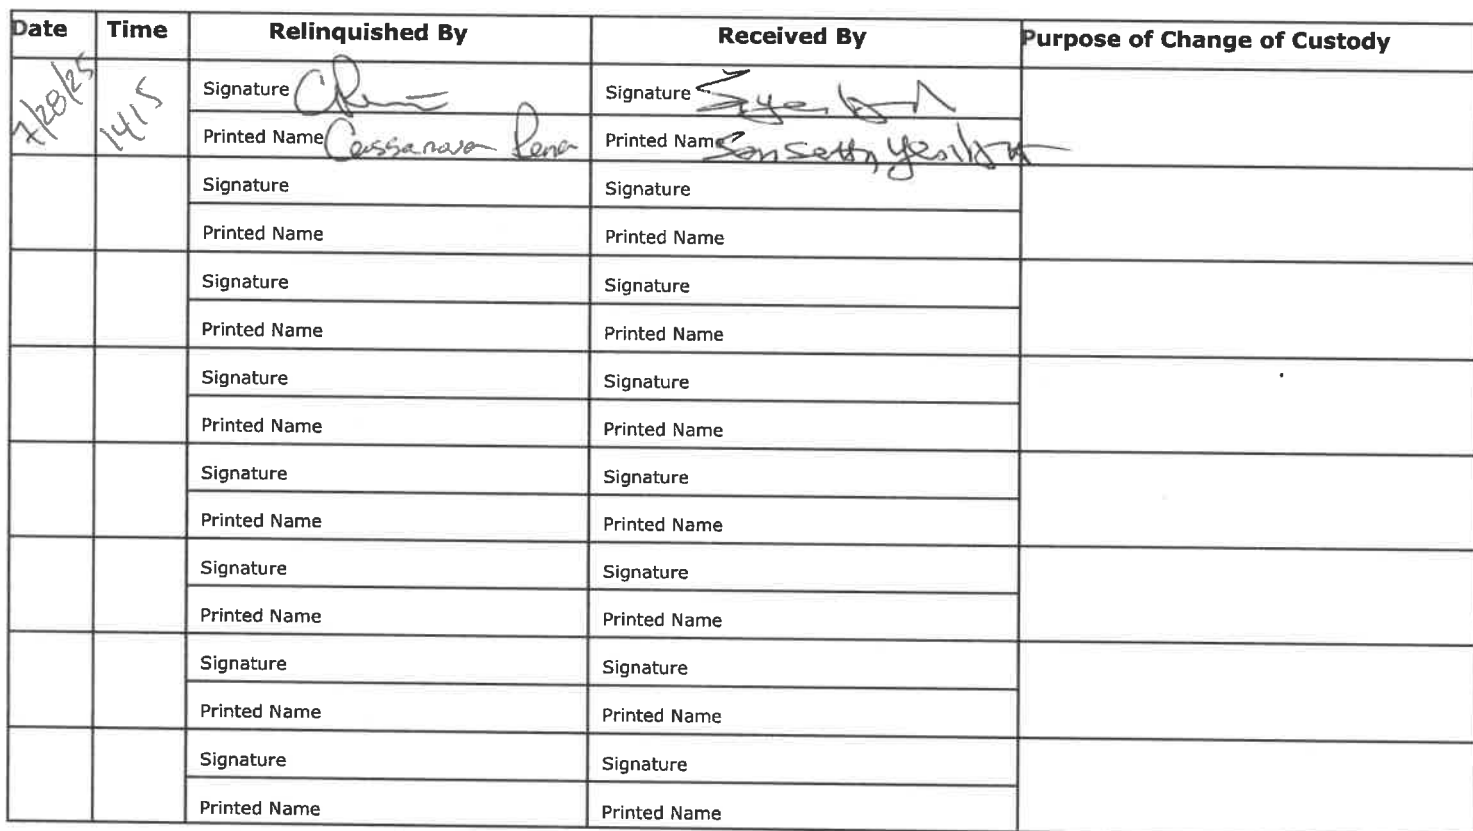 Date Time Relinquished By Received By Purpose of Change of Custody
7/28/25 1415 Signature Signature
Printed Name Cassanova Pena Printed Name
Signature Signature
Printed Name Printed Name
Signature Signature
Printed Name Printed Name
Signature Signature
Printed Name Printed Name
Signature Signature
Printed Name Printed Name
Signature Signature
Printed Name Printed Name
Signature Signature
Printed Name Printed Name
Signature Signature
Printed Name Printed Name